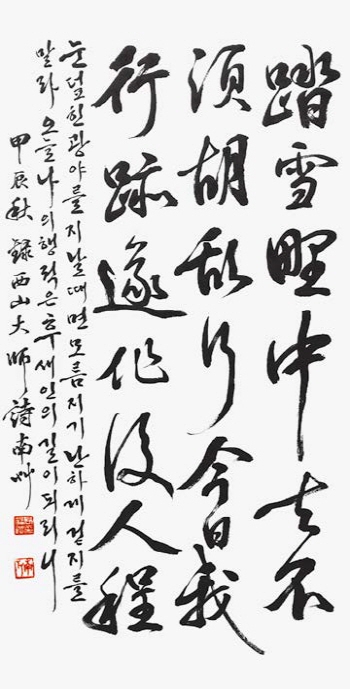 踏雪野中去不
須胡乱行今日我
行跡遂作後人程
눈 덮힌 광야를 지날 때면 모름지기 난하게 걷지를
말라 오늘 나의 행적은 후세인의 길이 되리니
甲辰秋 錄西山大師詩 南艸